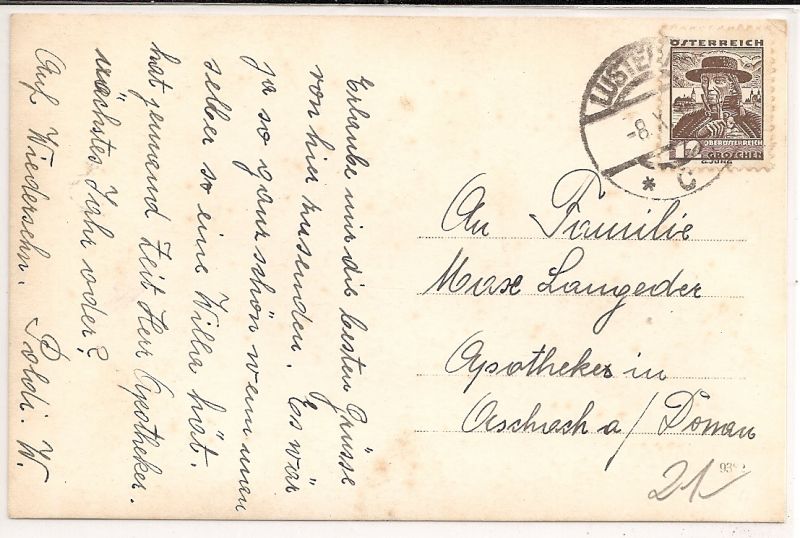 Erlaube mir die besten Grüsse
von hier zusenden. Es wär
ja so ganz schön wenn man
selber so eine Villa hät.
hat jemand Zeit Herr Apotheker.
nächstes Jahr oder?
Auf Wiedersehn. Poldi. W.
ÖSTERREICH
OBERÖSTERREICH
GROSCHEN
LUSTEN
-8.X
* C
An Familie
Max Langeder
Apotheker in
Aschach a/ Donau
21